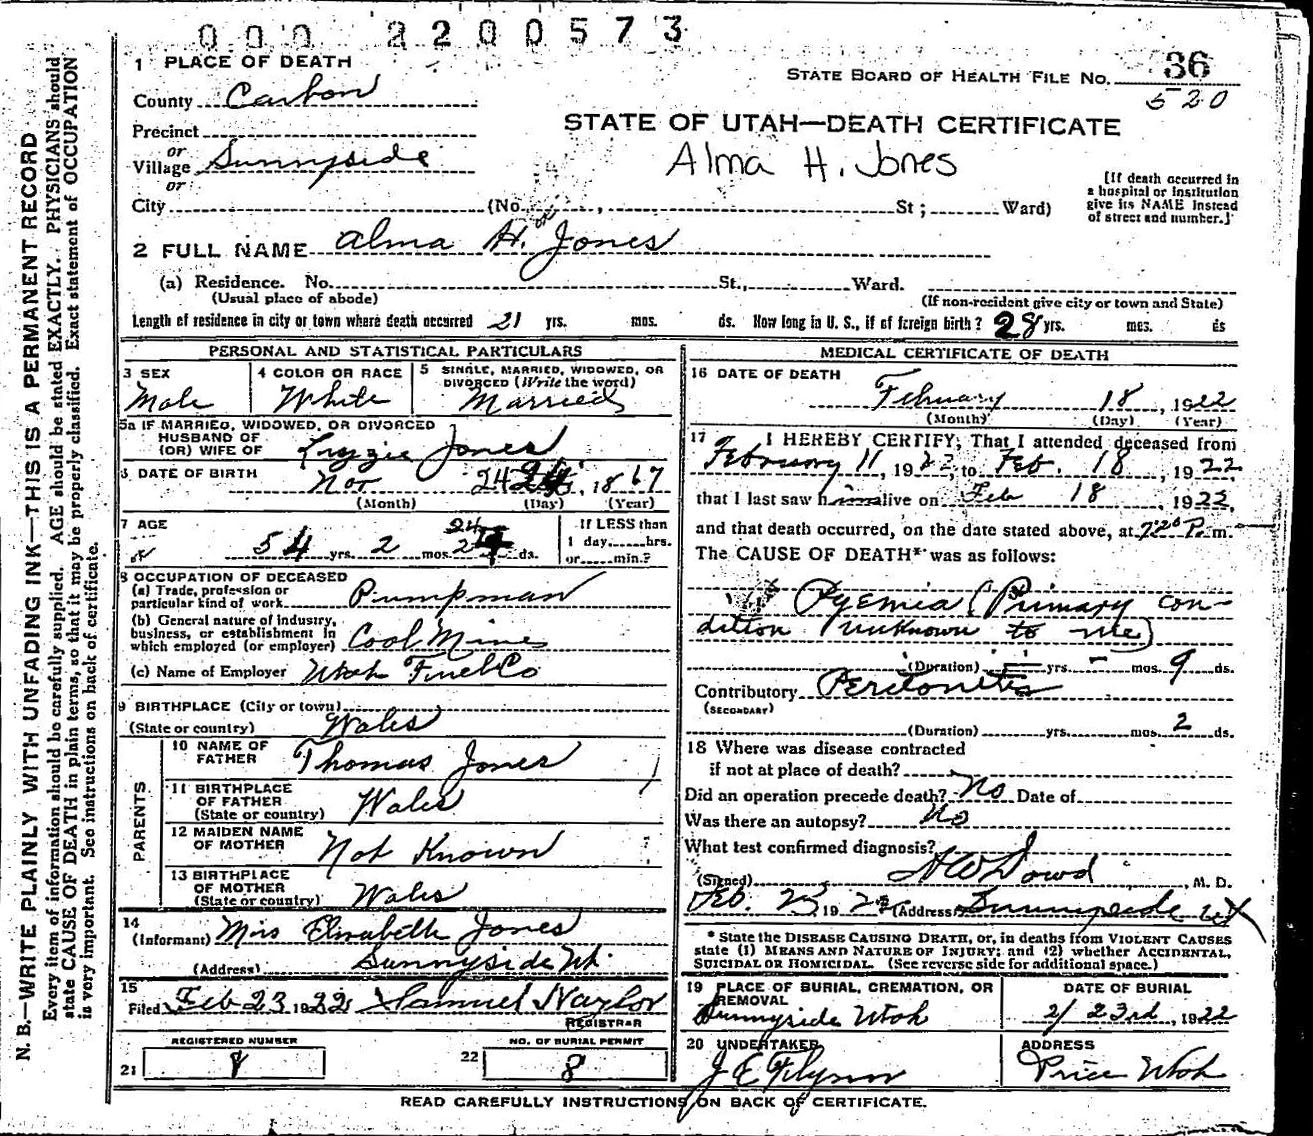 000 2200573
1 PLACE OF DEATH
STATE BOARD OF HEALTH FILE NO. 36
County Carbon
520
Precinct
STATE OF UTAH—DEATH CERTIFICATE
or
Village Sunnyside
Alma H. Jones
or
City (No. , St ; Ward)
[If death occurred in
a hospital or institution
give its NAME instead
of street and number.]
2 FULL NAME Alma H. Jones
(a) Residence. No. St., Ward.
(Usual place of abode) (If non-resident give city or town and State)
Length of residence in city or town where death occurred 21 yrs. mos. ds. How long in U. S., if of foreign birth? 28 yrs. mos. ds
PERSONAL AND STATISTICAL PARTICULARS
3 SEX Male
4 COLOR OR RACE White
5 SINGLE, MARRIED, WIDOWED, OR
DIVORCED (Write the word)
Married
5a IF MARRIED, WIDOWED, OR DIVORCED
HUSBAND OF
(OR) WIFE OF Lizzie Jones
6 DATE OF BIRTH Nov 24, 1867
(Month) (Day) (Year)
7 AGE 54 yrs. 2 mos. 24 ds.
If LESS than
1 day, hrs.
or min.?
8 OCCUPATION OF DECEASED
(a) Trade, profession or
particular kind of work Pumpman
(b) General nature of industry,
business, or establishment in
which employed (or employer) Coal Mine
(c) Name of Employer Utah Fuel Co
9 BIRTHPLACE (City or town)
(State or country) Wales
PARENTS
10 NAME OF
FATHER Thomas Jones
11 BIRTHPLACE
OF FATHER
(State or country) Wales
12 MAIDEN NAME
OF MOTHER Not Known
13 BIRTHPLACE
OF MOTHER
(State or country) Wales
14
(Informant) Mrs Elizabeth Jones
(Address) Sunnyside Ut.
15
Filed Feb 23 1922 Samuel Naylor
REGISTRAR
REGISTERED NUMBER
21 8
NO. OF BURIAL PERMIT
22 8
MEDICAL CERTIFICATE OF DEATH
16 DATE OF DEATH
February 18, 1922
(Month) (Day) (Year)
17 I HEREBY CERTIFY, That I attended deceased from
February 11, 1922, to Feb. 18, 1922,
that I last saw him alive on Feb 18, 1922,
and that death occurred, on the date stated above, at 7 20 P. m.
The CAUSE OF DEATH* was as follows:
Pyemia (Primary con-
dition unknown to me)
(Duration) – yrs. – mos. 9 ds.
Contributory Peritonitis
(SECONDARY)
(Duration) yrs. mos. 2 ds.
18 Where was disease contracted
if not at place of death?
Did an operation precede death? No Date of
Was there an autopsy? No
What test confirmed diagnosis?
(Signed) A W Dowd, M. D.
Feb. 23 1922 (Address) Sunnyside Ut
* State the DISEASE CAUSING DEATH, or, in deaths from VIOLENT CAUSES
state (1) MEANS AND NATURE OF INJURY; and (2) whether ACCIDENTAL,
SUICIDAL OR HOMICIDAL. (See reverse side for additional space.)
19 PLACE OF BURIAL, CREMATION, OR
REMOVAL
Sunnyside Utah
DATE OF BURIAL
2/ 23rd, 1922
20 UNDERTAKER
J E Flynn
ADDRESS
Price Utah
READ CAREFULLY INSTRUCTIONS ON BACK OF CERTIFICATE.
N. B.—WRITE PLAINLY WITH UNFADING INK—THIS IS A PERMANENT RECORD
Every item of information should be carefully supplied. AGE should be stated EXACTLY. PHYSICIANS should
state CAUSE OF DEATH in plain terms, so that it may be properly classified. Exact statement of OCCUPATION
is very important. See instructions on back of certificate.